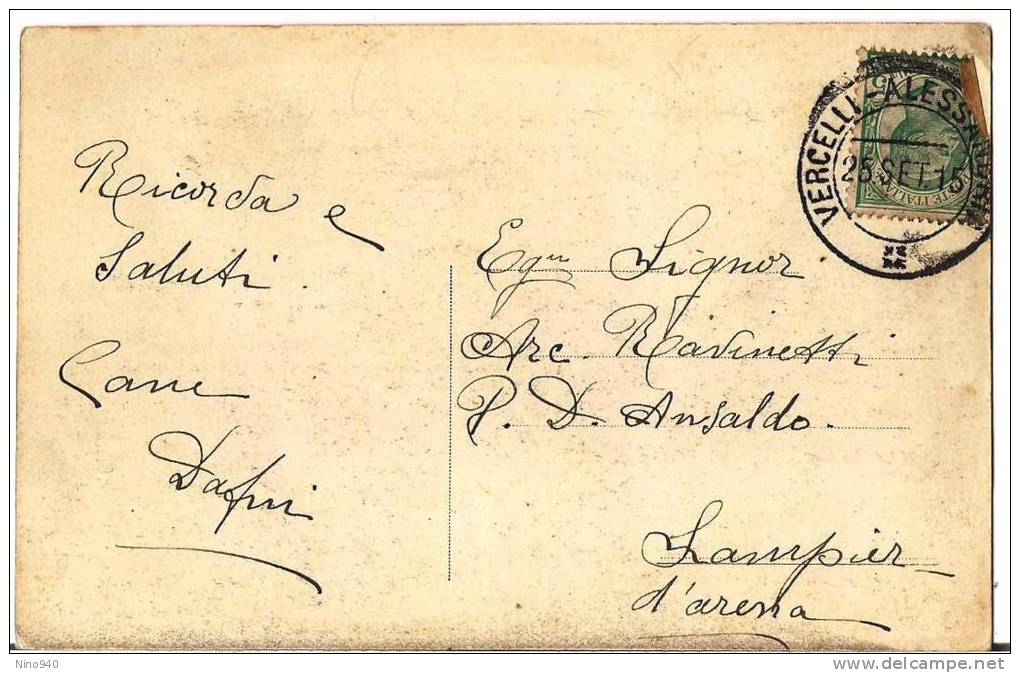 Ricorda e
Saluti
Cane
Dafni
VERCELLI - ALESSANDRIA
25 SET. 15
Egn Signor
Arc. Ravinetti
P. D. Ansaldo.
Sampier-
d'arena
Nino940
delcampe.net